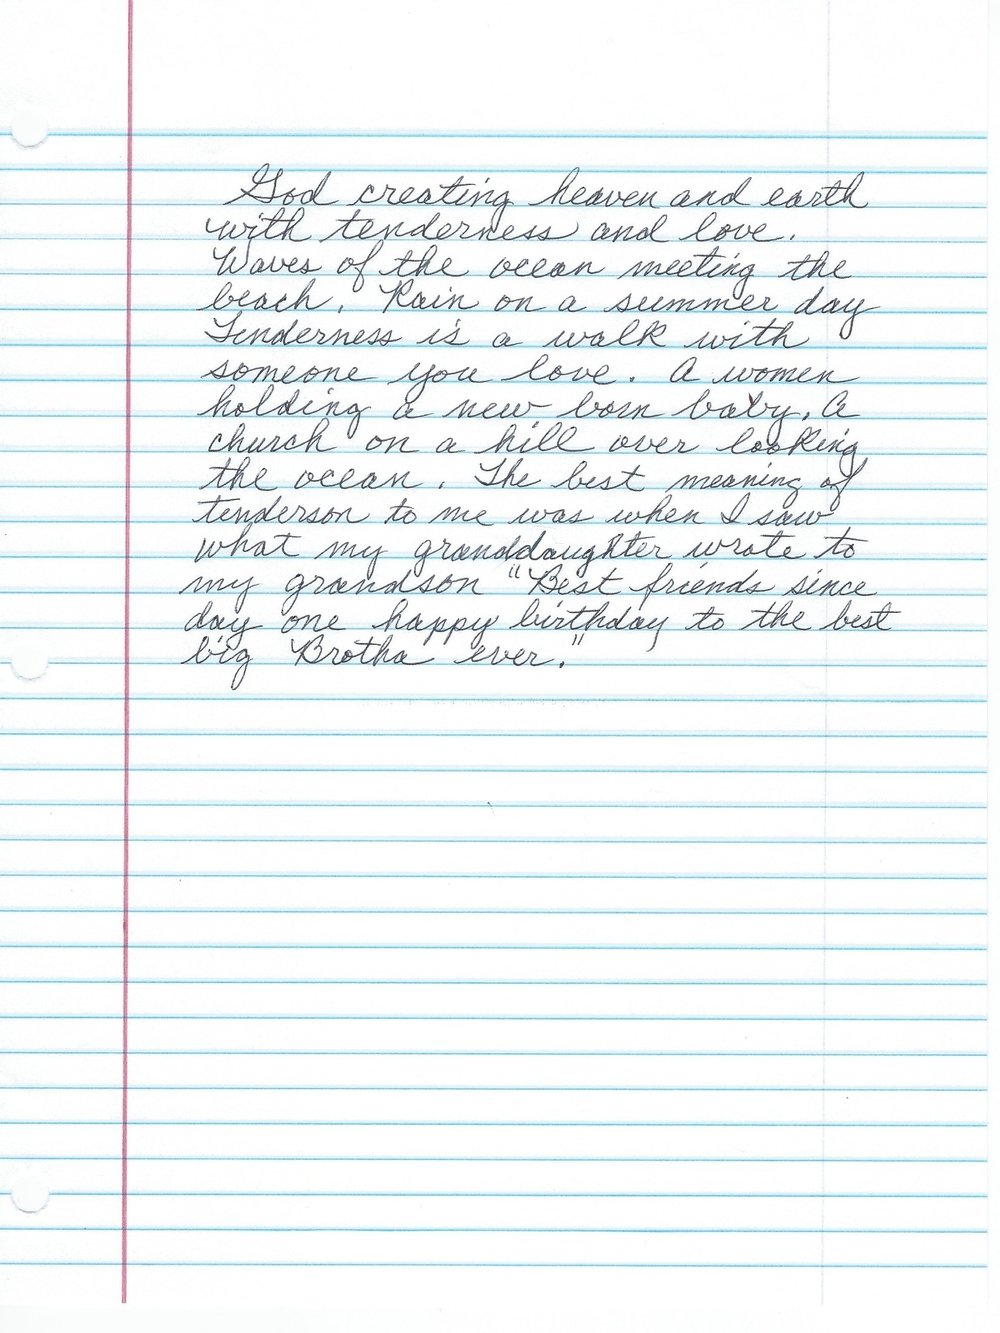 God creating heaven and earth
with tenderness and love.
Waves of the ocean meeting the
beach. Rain on a summer day
Tenderness is a walk with
someone you love. A women
holding a new born baby. A
church on a hill over looking
the ocean. The best meaning of
tenderson to me was when I saw
what my granddaughter wrote to
my grandson "Best friends since
day one happy birthday to the best
big Brotha ever."